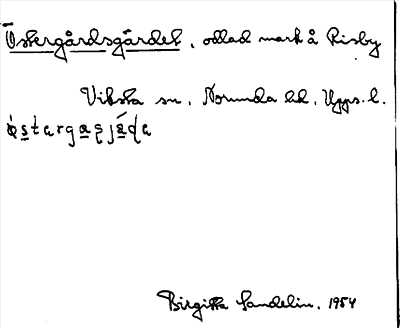 Östergårdsgärdet, odlad mark å Risby
Viksta sn, Norunda hd, Upps. l.
östargaʂjäɖa
Birgitta Sandelin, 1954